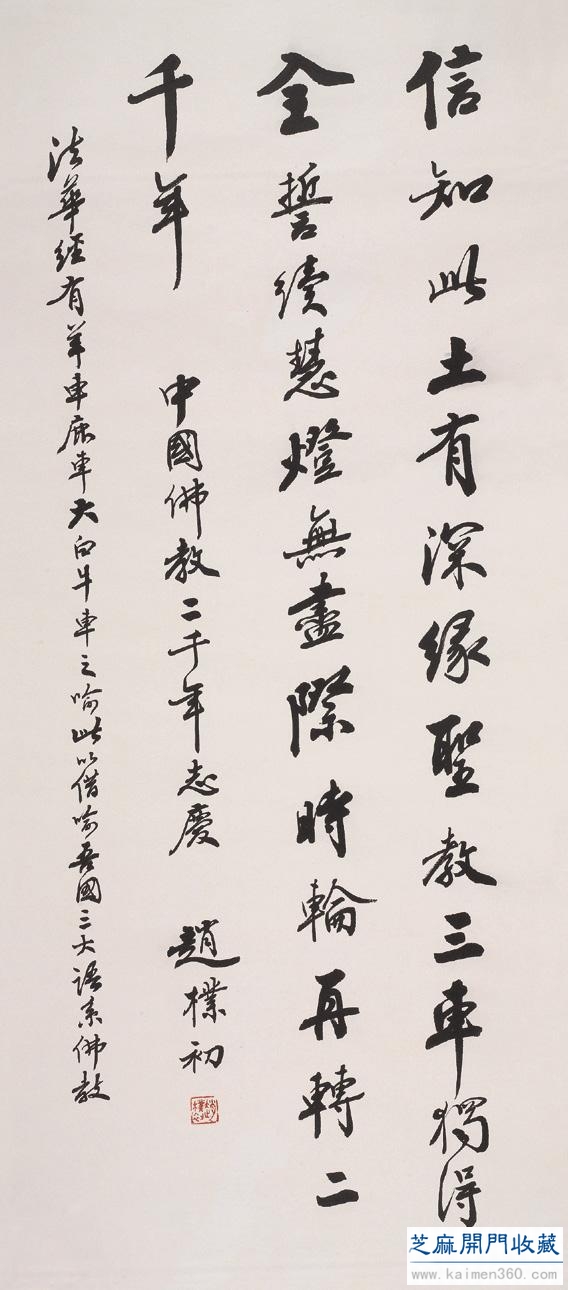 信知此土有深緣聖教三車獨得
全誓續慧燈無盡際時輪再轉二
千年
中國佛教二千年志慶
趙樸初
法華經有羊車鹿車大白牛車之喻此以借喻吾國三大語系佛教
芝麻開門收藏
www.kaimen360.com